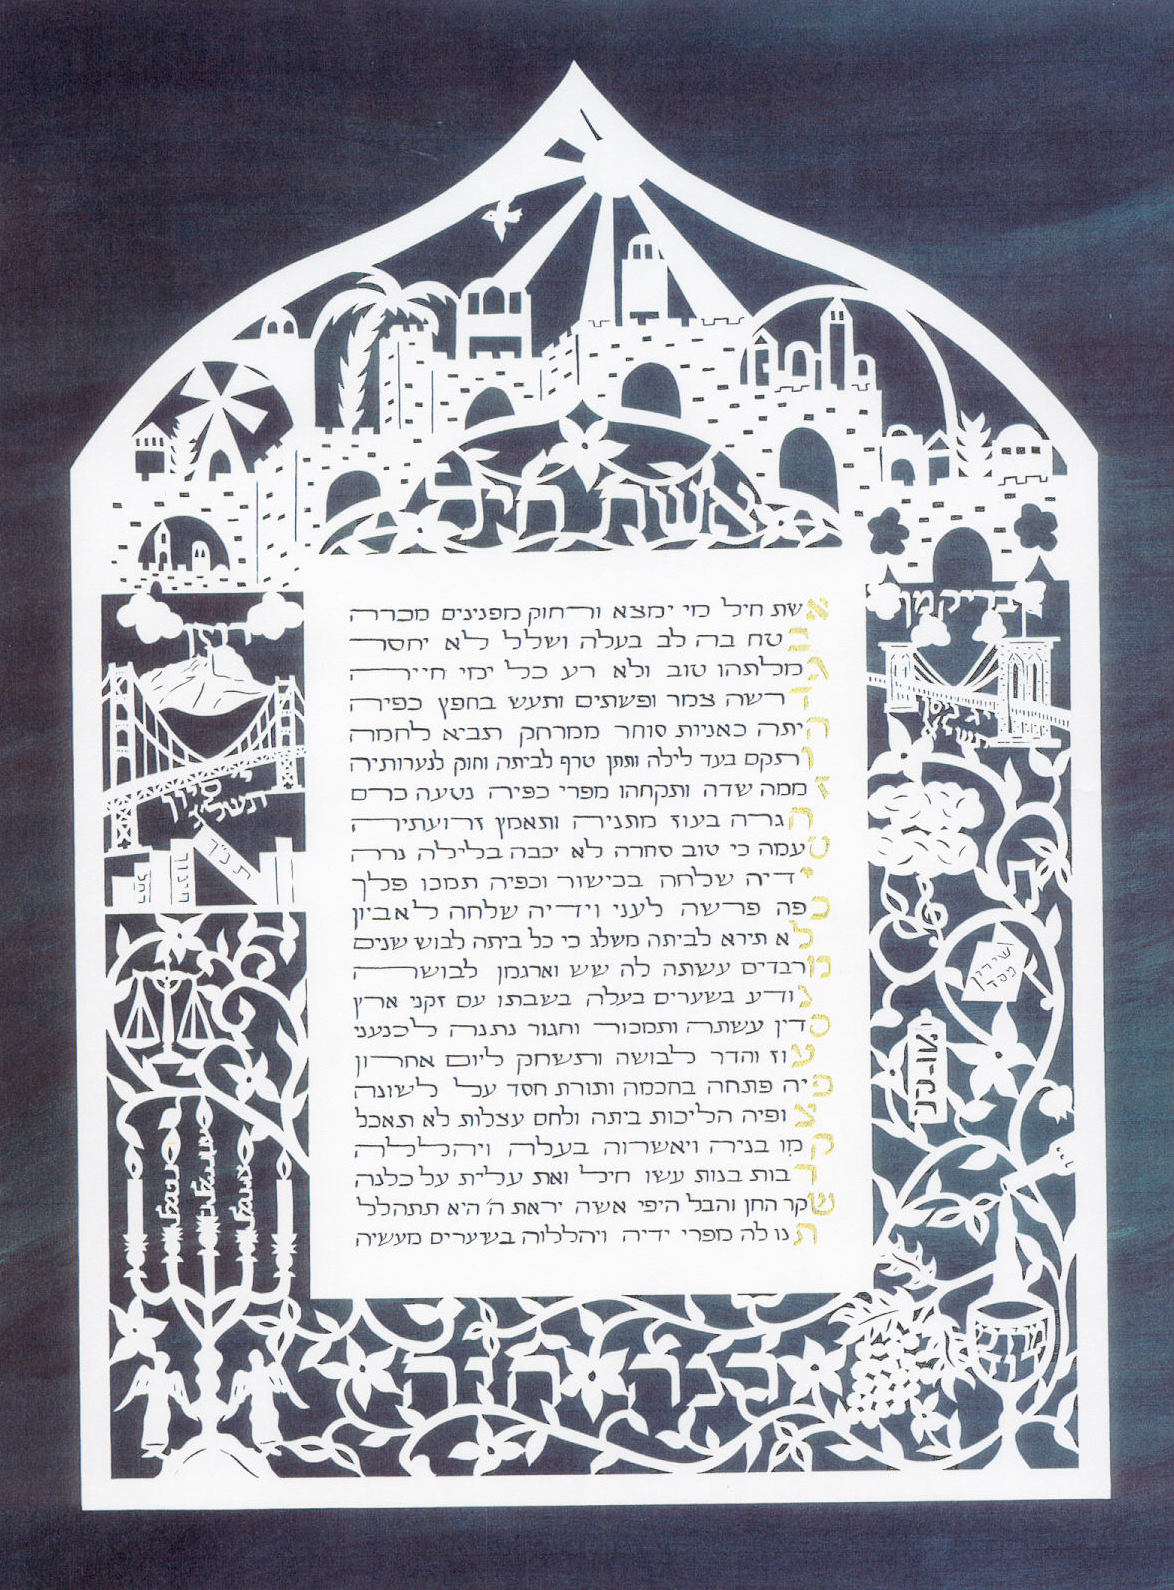 אשת חיל
אשת חיל מי ימצא ורחוק מפנינים מכרה
בטח בה לב בעלה ושלל לא יחסר
גמלתהו טוב ולא רע כל ימי חייה
דרשה צמר ופשתים ותעש בחפץ כפיה
היתה כאניות סוחר ממרחק תביא לחמה
ותקם בעד לילה ותתן טרף לביתה וחוק לנערותיה
זממה שדה ותקחהו מפרי כפיה נטעה כרם
חגרה בעוז מתניה ותאמץ זרועתיה
טעמה כי טוב סחרה לא יכבה בלילה נרה
ידיה שלחה בכישור וכפיה תמכו פלך
כפה פרשה לעני וידיה שלחה לאביון
לא תירא לביתה משלג כי כל ביתה לבוש שנים
מרבדים עשתה לה שש וארגמן לבושה
נודע בשערים בעלה בשבתו עם זקני ארץ
סדין עשתה ותמכור וחגור נתנה לכנעני
עוז והדר לבושה ותשחק ליום אחרון
פיה פתחה בחכמה ותורת חסד על לשונה
צופיה הליכות ביתה ולחם עצלות לא תאכל
קמו בניה ויאשרוה בעלה ויהללה
רבות בנות עשו חיל ואת עלית על כלנה
שקר החן והבל היפי אשה יראת ה' היא תתהלל
תנו לה מפרי ידיה ויהללוה בשערים מעשיה
בריקמן
יג ניסן
תשי"א
רוזן
תשל
תנ"ך
שירון